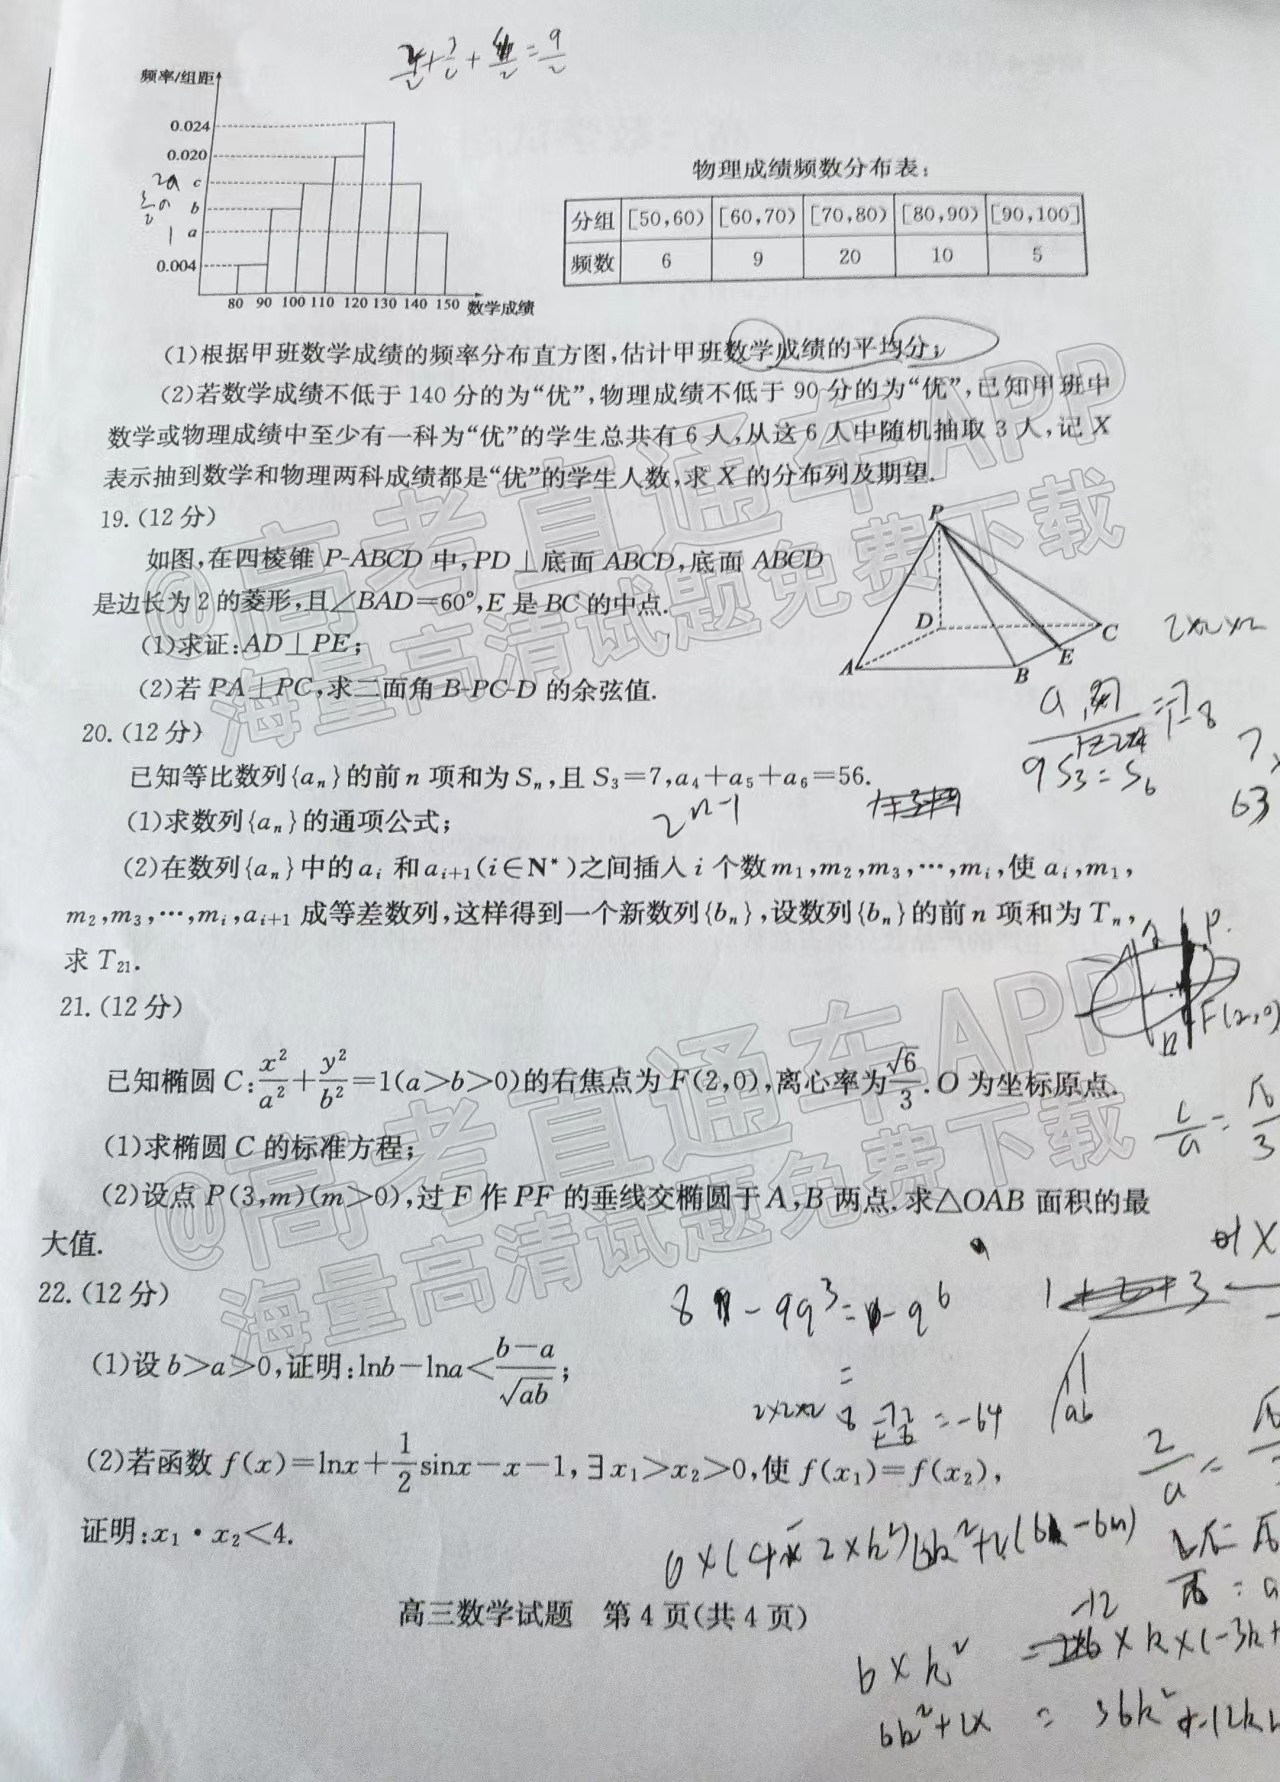 频率/组距
0.024
0.020
2a c
b
a
0.004
80 90 100 110 120 130 140 150 数学成绩
物理成绩频数分布表:
分组 [50,60) [60,70) [70,80) [80,90) [90,100]
频数 6 9 20 10 5
(1)根据甲班数学成绩的频率分布直方图,估计甲班数学成绩的平均分;
(2)若数学成绩不低于140分的为“优”,物理成绩不低于90分的为“优”,已知甲班中
数学或物理成绩中至少有一科为“优”的学生总共有6人,从这6人中随机抽取3人,记X
表示抽到数学和物理两科成绩都是“优”的学生人数,求X的分布列及期望.
19.(12分)
如图,在四棱锥P-ABCD中,PD⊥底面ABCD,底面ABCD
是边长为2的菱形,且∠BAD=60°,E是BC的中点.
(1)求证:AD⊥PE;
(2)若PA⊥PC,求二面角B-PC-D的余弦值.
P
D
C
E
A
B
2×2×2
20.(12分)
已知等比数列{aₙ}的前n项和为Sₙ,且S₃=7,a₄+a₅+a₆=56.
9S₃=S₆
63
(1)求数列{aₙ}的通项公式;
2ⁿ⁻¹
(2)在数列{aₙ}中的aᵢ和aᵢ₊₁(i∈N*)之间插入i个数m₁,m₂,m₃,…,mᵢ,使aᵢ,m₁,
m₂,m₃,…,mᵢ,aᵢ₊₁成等差数列,这样得到一个新数列{bₙ},设数列{bₙ}的前n项和为Tₙ,
求T₂₁.
P
F(2,0)
21.(12分)
已知椭圆C:x²/a²+y²/b²=1(a>b>0)的右焦点为F(2,0),离心率为√6/3.O为坐标原点.
(1)求椭圆C的标准方程;
(2)设点P(3,m)(m>0),过F作PF的垂线交椭圆于A,B两点.求△OAB面积的最
大值.
22.(12分)
(1)设b>a>0,证明:lnb-lna<(b-a)/√ab;
2×2×2
=-64
(2)若函数f(x)=lnx+1/2sinx-x-1,∃x₁>x₂>0,使f(x₁)=f(x₂),
证明:x₁·x₂<4.
高三数学试题 第4页(共4页)
@高考直通车APP
海量高清试题免费下载
@高考直通车APP
海量高清试题免费下载